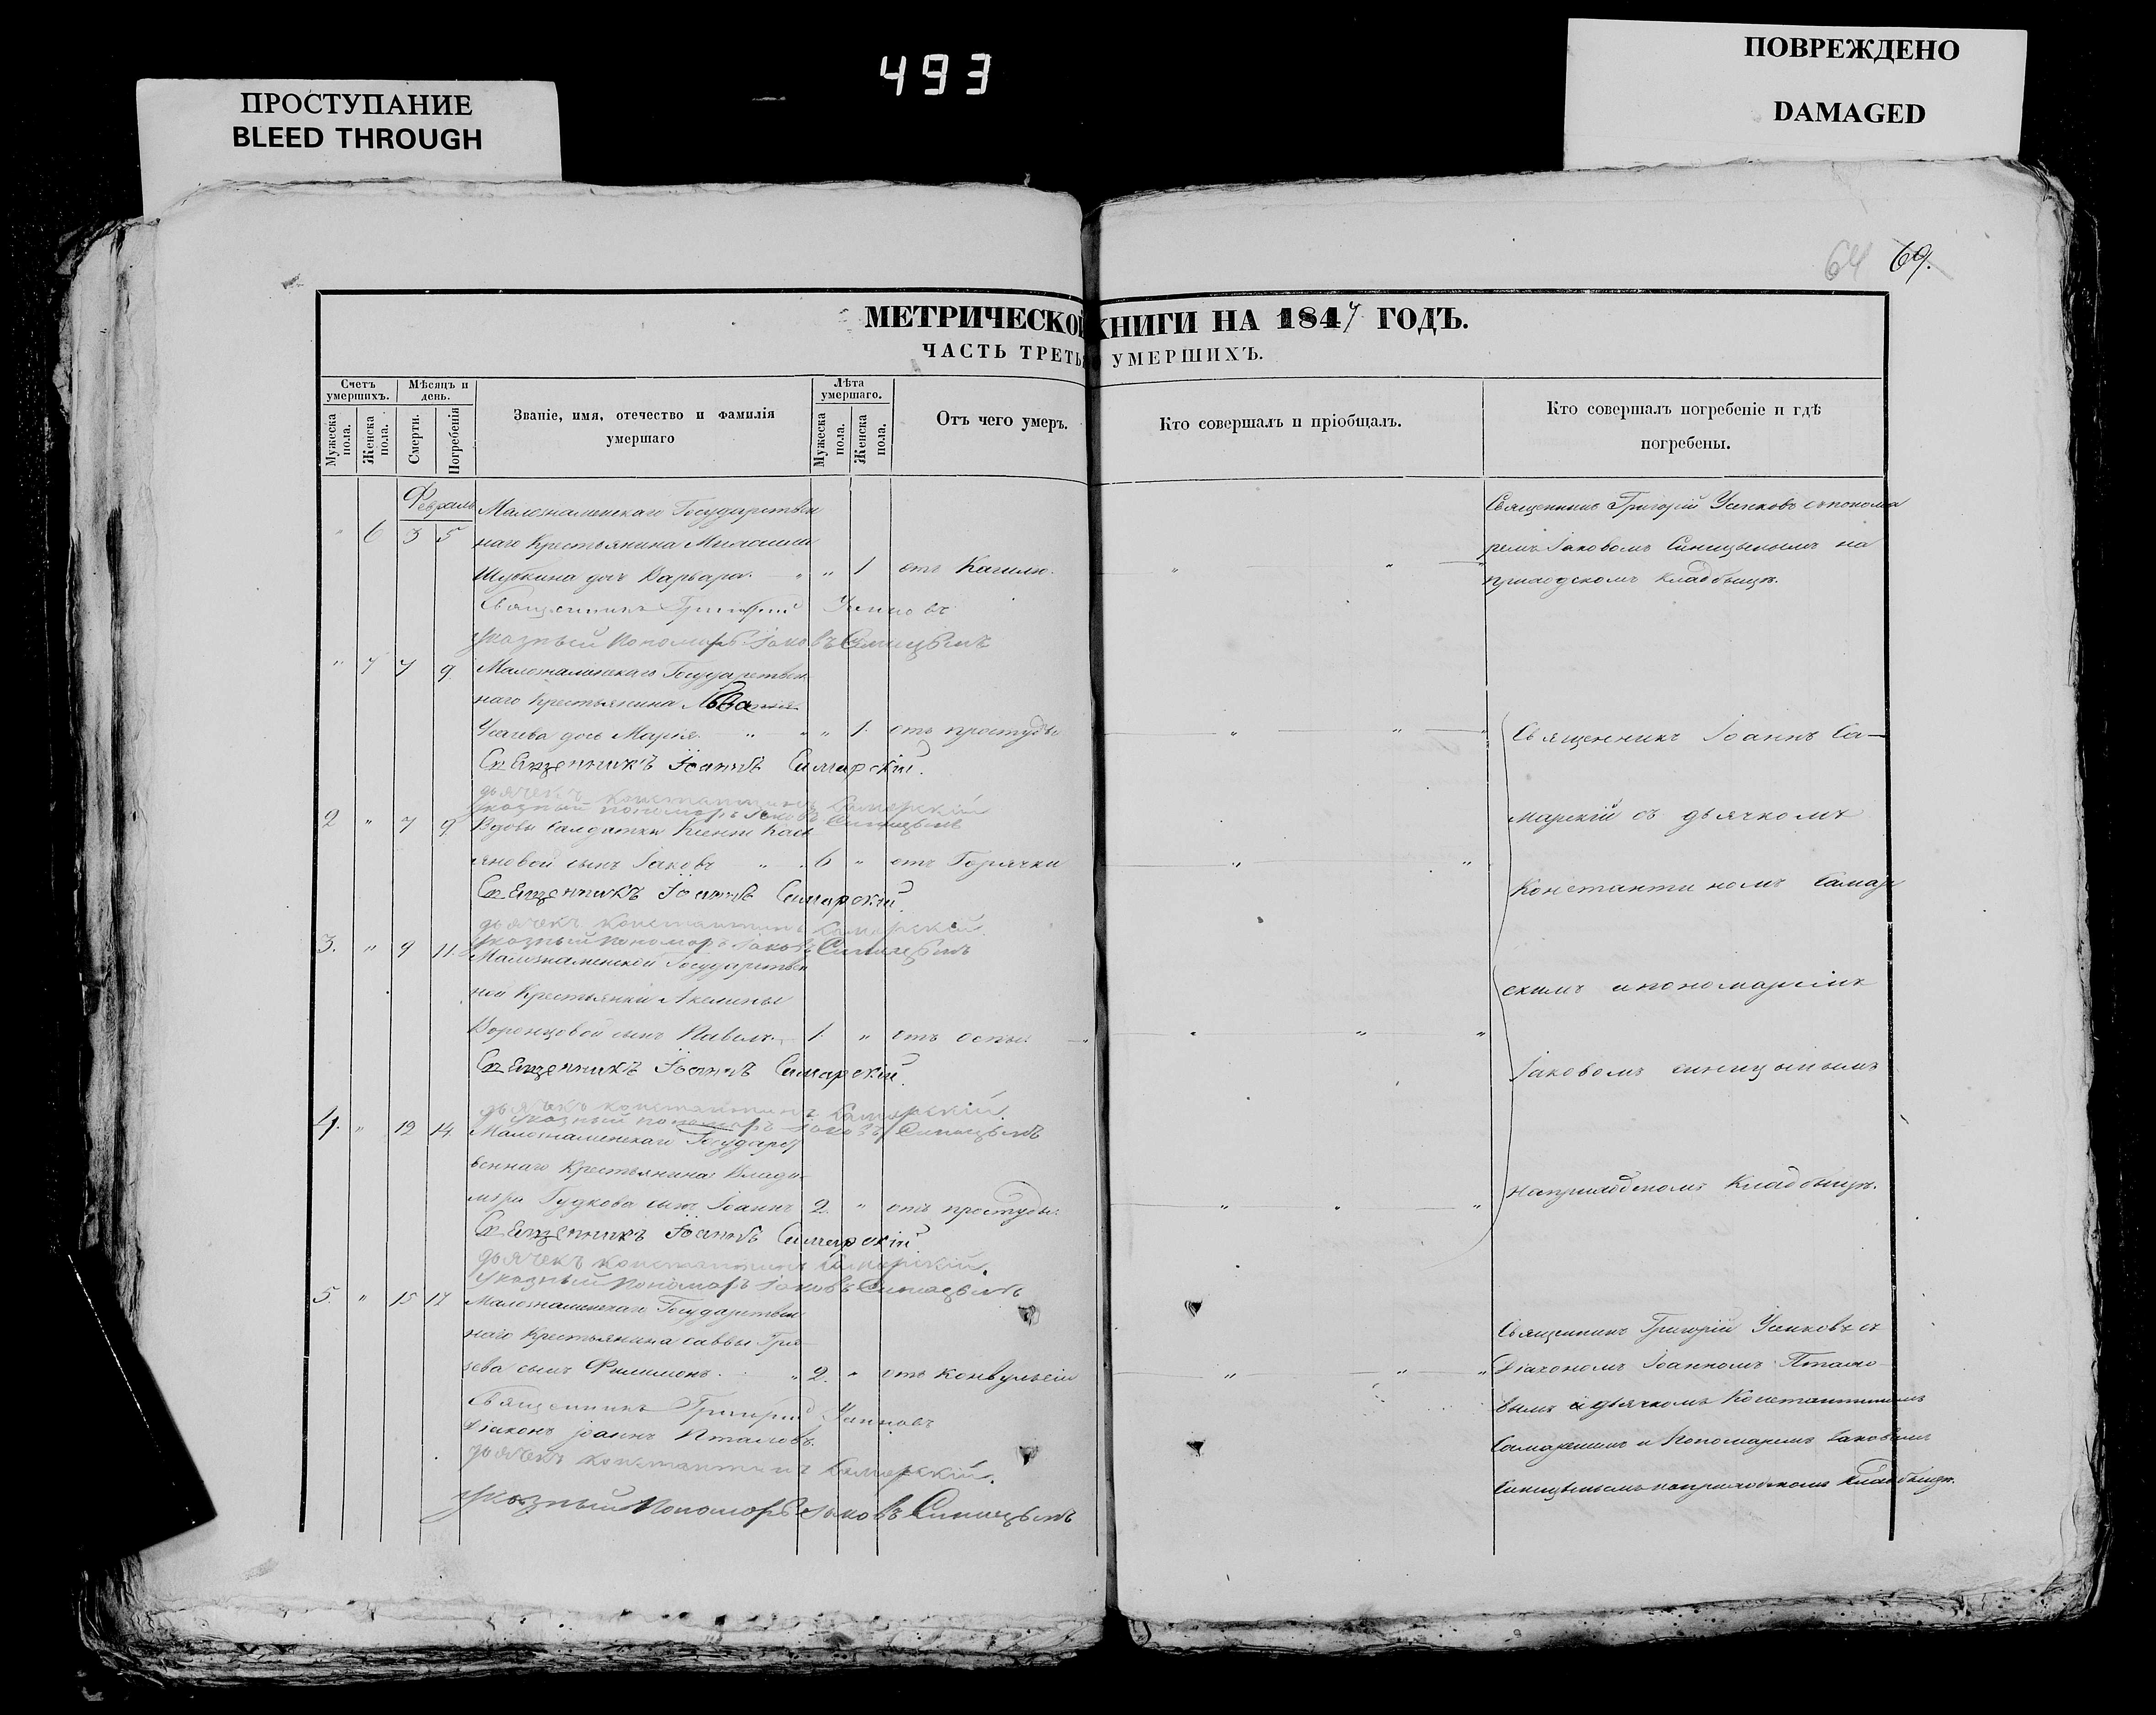 493
ПРОСТУПАНИЕ
BLEED THROUGH
ПОВРЕЖДЕНО
DAMAGED
64 69.
МЕТРИЧЕСКОЙ КНИГИ НА 1847 ГОДЪ.
ЧАСТЬ ТРЕТЬЯ УМЕРШИХЪ.
Счетъ умершихъ.
Мужеска пола.
Женска пола.
Мѣсяцъ и день.
Смерти.
Погребенія
Званіе, имя, отечество и фамилія умершаго
Лѣта умершаго.
Мужеска пола.
Женска пола.
Отъ чего умеръ.
Кто совершалъ и пріобщалъ.
Кто совершалъ погребеніе и гдѣ
погребены.
Февраль
Малознаменскаго Государствен
" 6 3 5 наго Крестьянина
дочь Варвара. " " 1 отъ Кашлю.
Священникъ Григорій Усиковъ съ понома
ремъ Іаковомъ Синицынымъ на
приходскомъ кладбищѣ.
Священникъ Григорій
Указный Пономарь Іаковъ Синицынъ
" 7 7 9. Малознаменскаго Государствен
наго Крестьянина
дочь Марія " " " 1. отъ простуды
Священникъ Іоаннъ Самарскій.
дьячекъ Константинъ Самарскій
Указный пономарь Іаковъ Синицынъ
2 " 7 9. Вдовы Салдатки
сынъ Іаковъ " 6 " отъ Горячки
Священникъ Іоаннъ Самарскій.
дьячекъ Константинъ Самарскій
Указный пономарь Іаковъ Синицынъ
3. " 9 11. Малознаменской Государствен
ной Крестьянки Акелины
Воронцовой сынъ Павелъ. 1. " отъ оспы.
Священникъ Іоаннъ Самарскій.
дьячекъ Константинъ Самарскій.
Указный пономарь Іаковъ Синицынъ
4. " 12 14. Малознаменскаго Государст
веннаго Крестьянина Влади
міра Гудкова сынъ Іоаннъ 2. " отъ простуды.
Священникъ Іоаннъ Самарскій
дьячекъ Константинъ Самарскій.
Указный Пономарь Іаковъ Синицынъ
Священникъ Іоаннъ Са-
марскій съ дьячкомъ
Константиномъ Самар
скимъ и пономаремъ
Іаковомъ Синицынымъ
на приходскомъ Кладбищѣ.
5. " 15 17 Малознаменскаго Государствен
наго Крестьянина Саввы
сынъ Филимонъ. " 2. " отъ конвульсіи
Священникъ Григорій
Діаконъ Іоаннъ
дьячекъ Константинъ Самарскій.
Указный Пономарь Іаковъ Синицынъ
Священникъ Григорій Усиковъ съ
Діакономъ Іоанномъ
вымъ и дьячкомъ Константиномъ
Самарскимъ и Пономаремъ Іаковомъ
Синицынымъ на приходскомъ кладбищѣ.